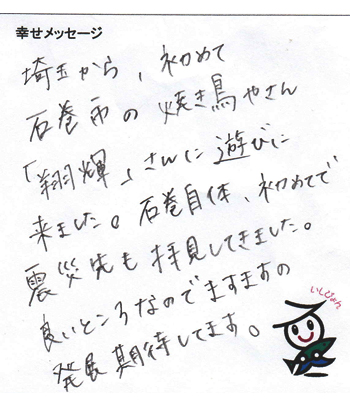 幸せメッセージ
埼玉から、初めて
石巻市の焼き鳥やさん
「翔輝」さんに遊びに
来ました。石巻自体、初めてで
震災先も拝見してきました。
良いところなのでますますの
発展期待してます。
いしぴょん